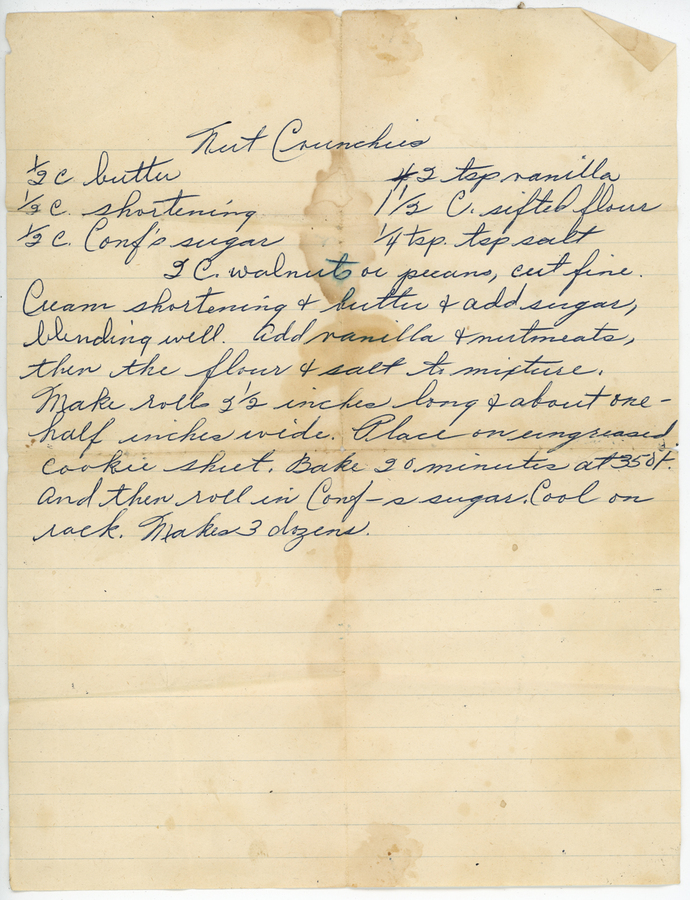 Nut Crunchies
½ c butter 2 tsp vanilla
½ c. shortening 1½ C. sifted flour
½ c. Conf's sugar ¼ tsp. tsp salt
2 C. walnuts or pecans, cut fine.
Cream shortening & butter & add sugar,
blending well. Add vanilla & nutmeats,
then the flour & salt to mixture.
Make rolls 2½ inches long & about one-
half inches wide. Place on ungreased
cookie sheet. Bake 20 minutes at 350 f.
And then roll in Conf-s sugar. Cool on
rack. Makes 3 dozens.